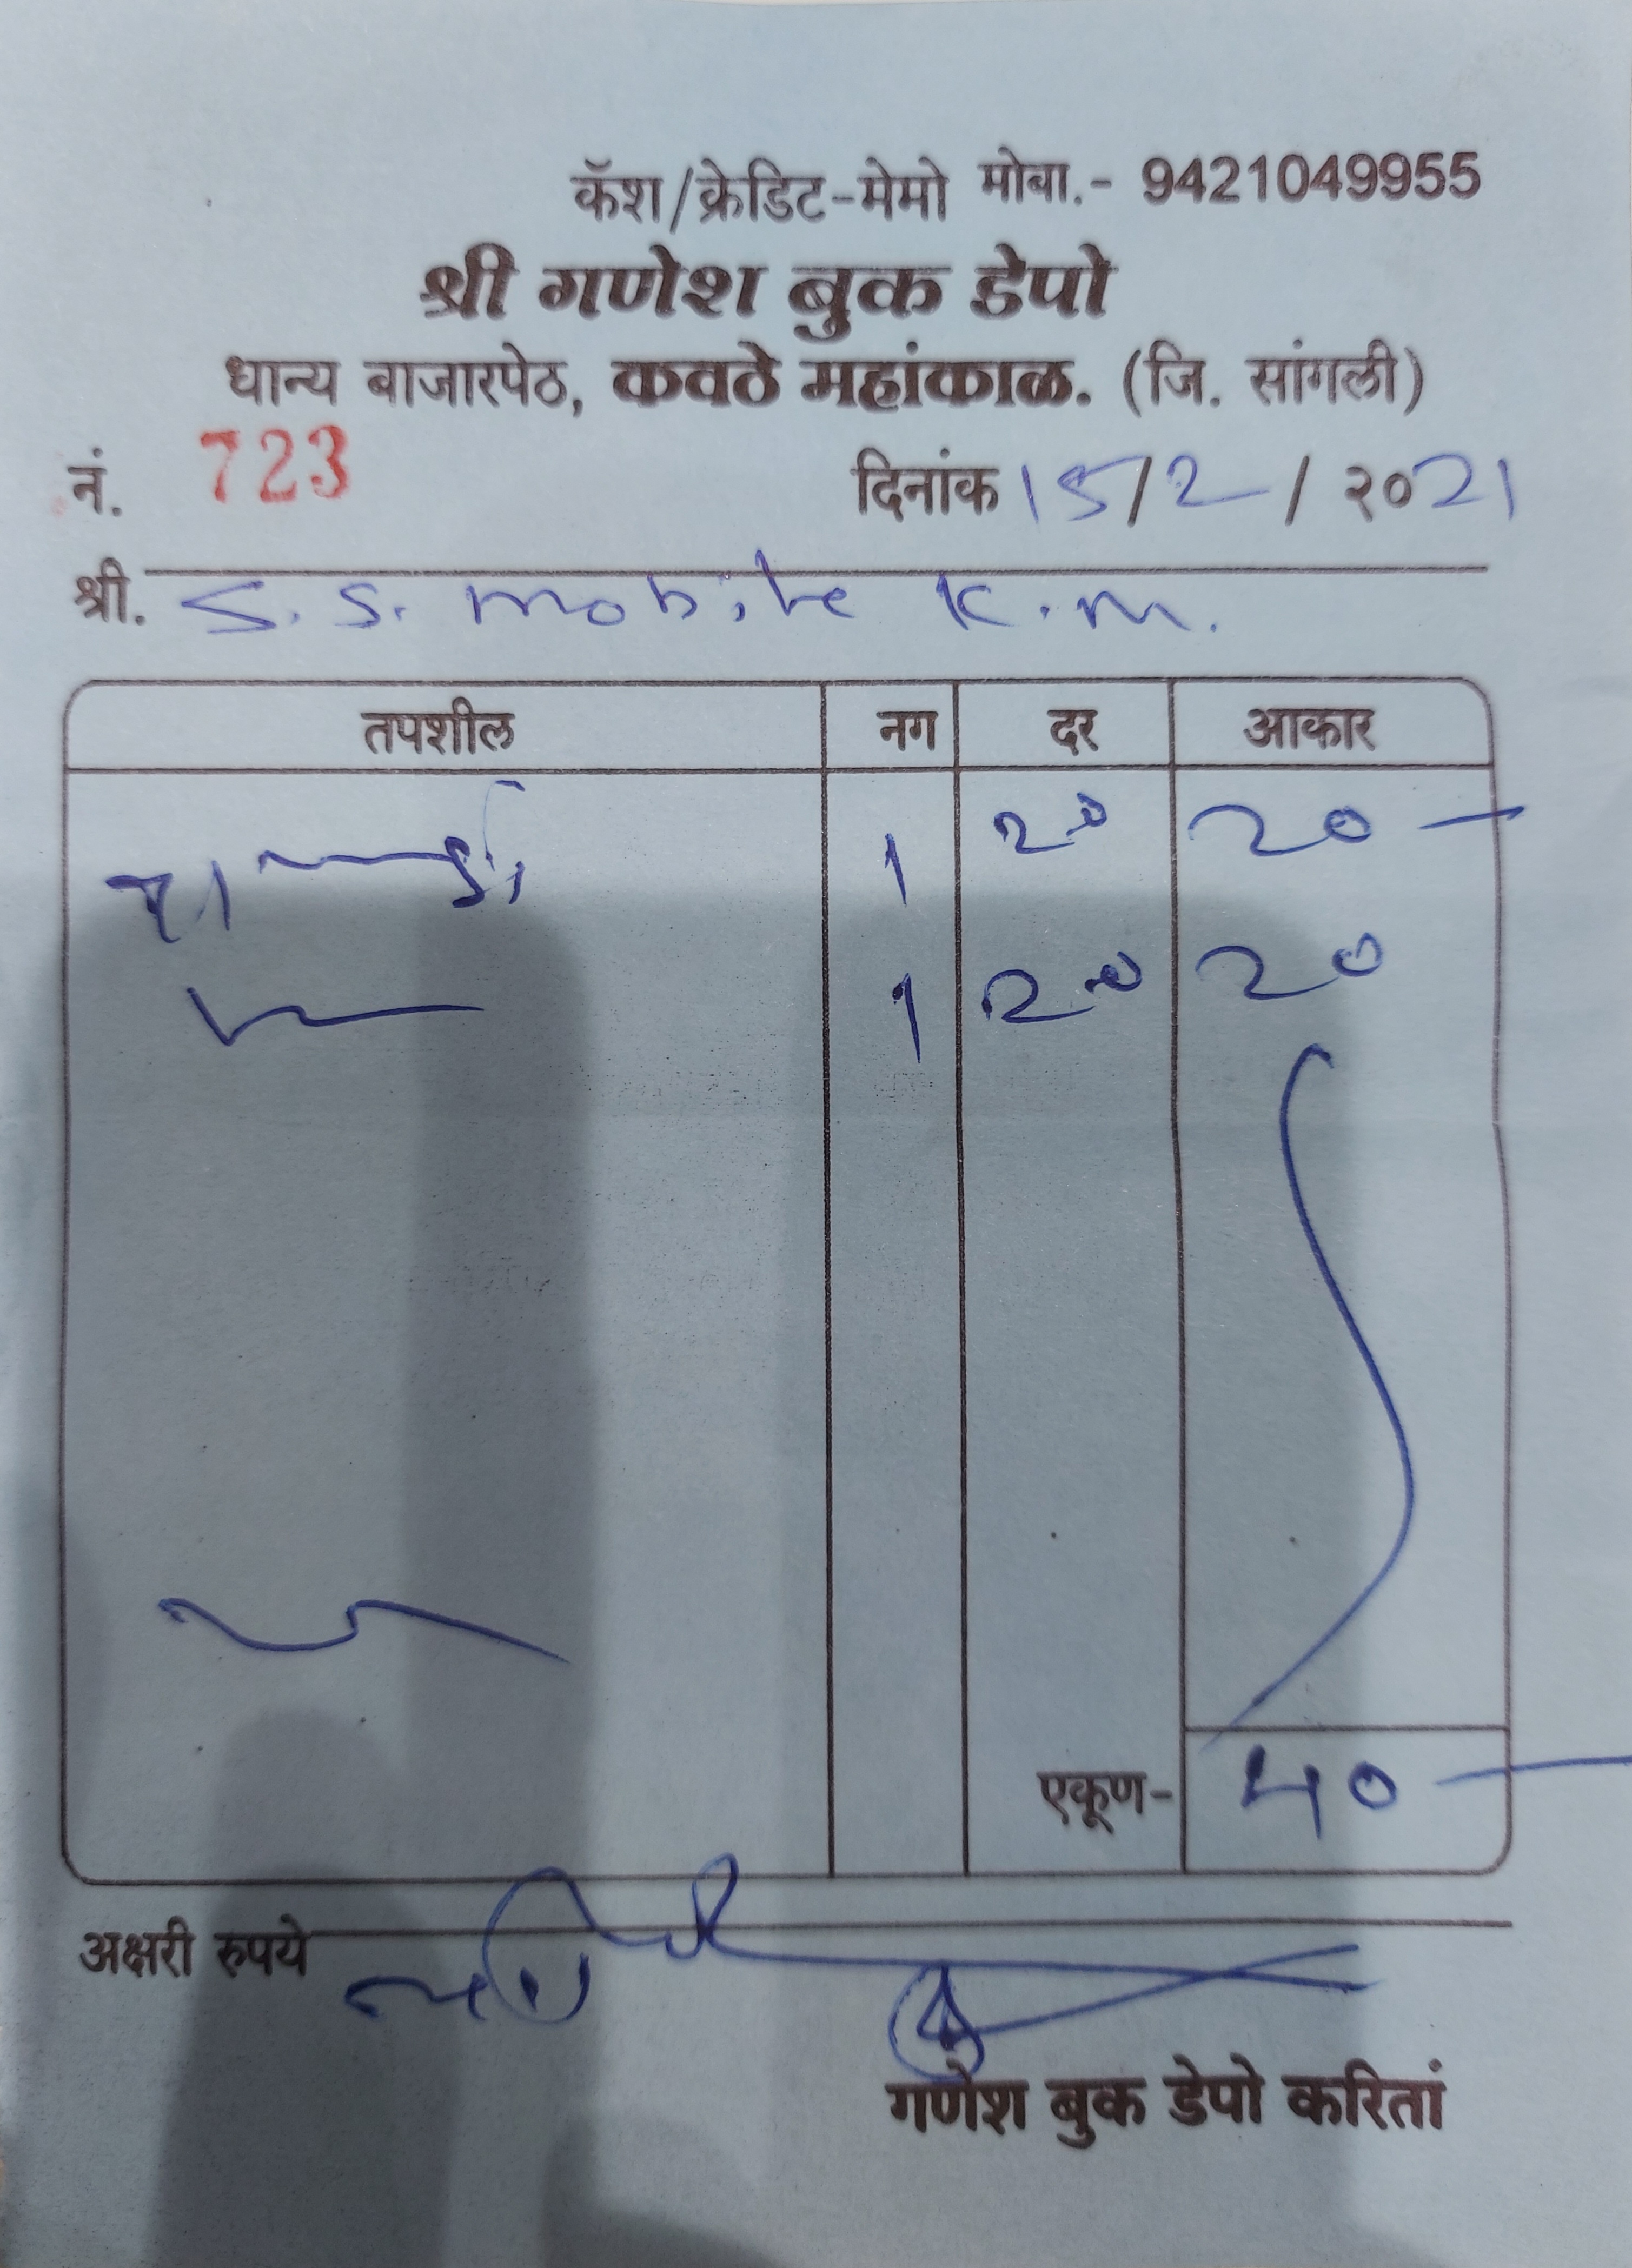 कॅश/क्रेडिट-मेमो मोबा.- 9421049955
श्री गणेश बुक डेपो
धान्य बाजारपेठ, कवठे महांकाळ. (जि. सांगली)
नं. 723 दिनांक 15/2/२०21
श्री. S.S. mobile K.M.
तपशील नग दर आकार
1 20 20
1 20 20
एकूण- 40
अक्षरी रुपये
गणेश बुक डेपो करितां